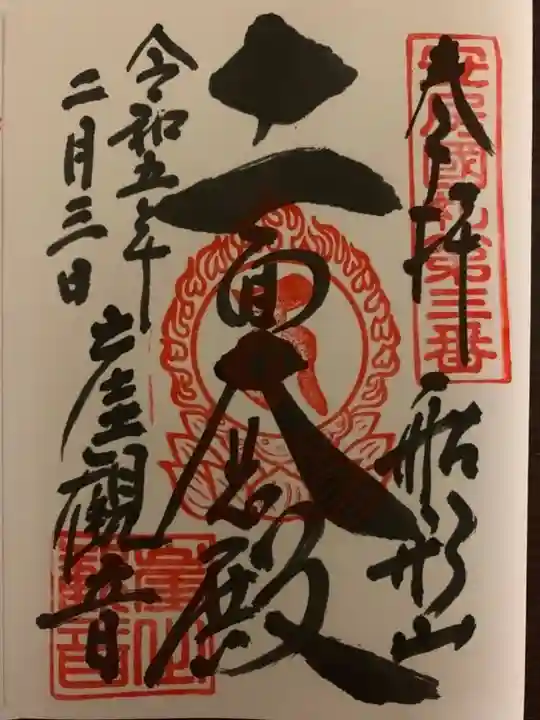 奉拝
安房國札第三番
船形山
十一面大悲殿
崖観音
崖観音
令和五年
二月三日